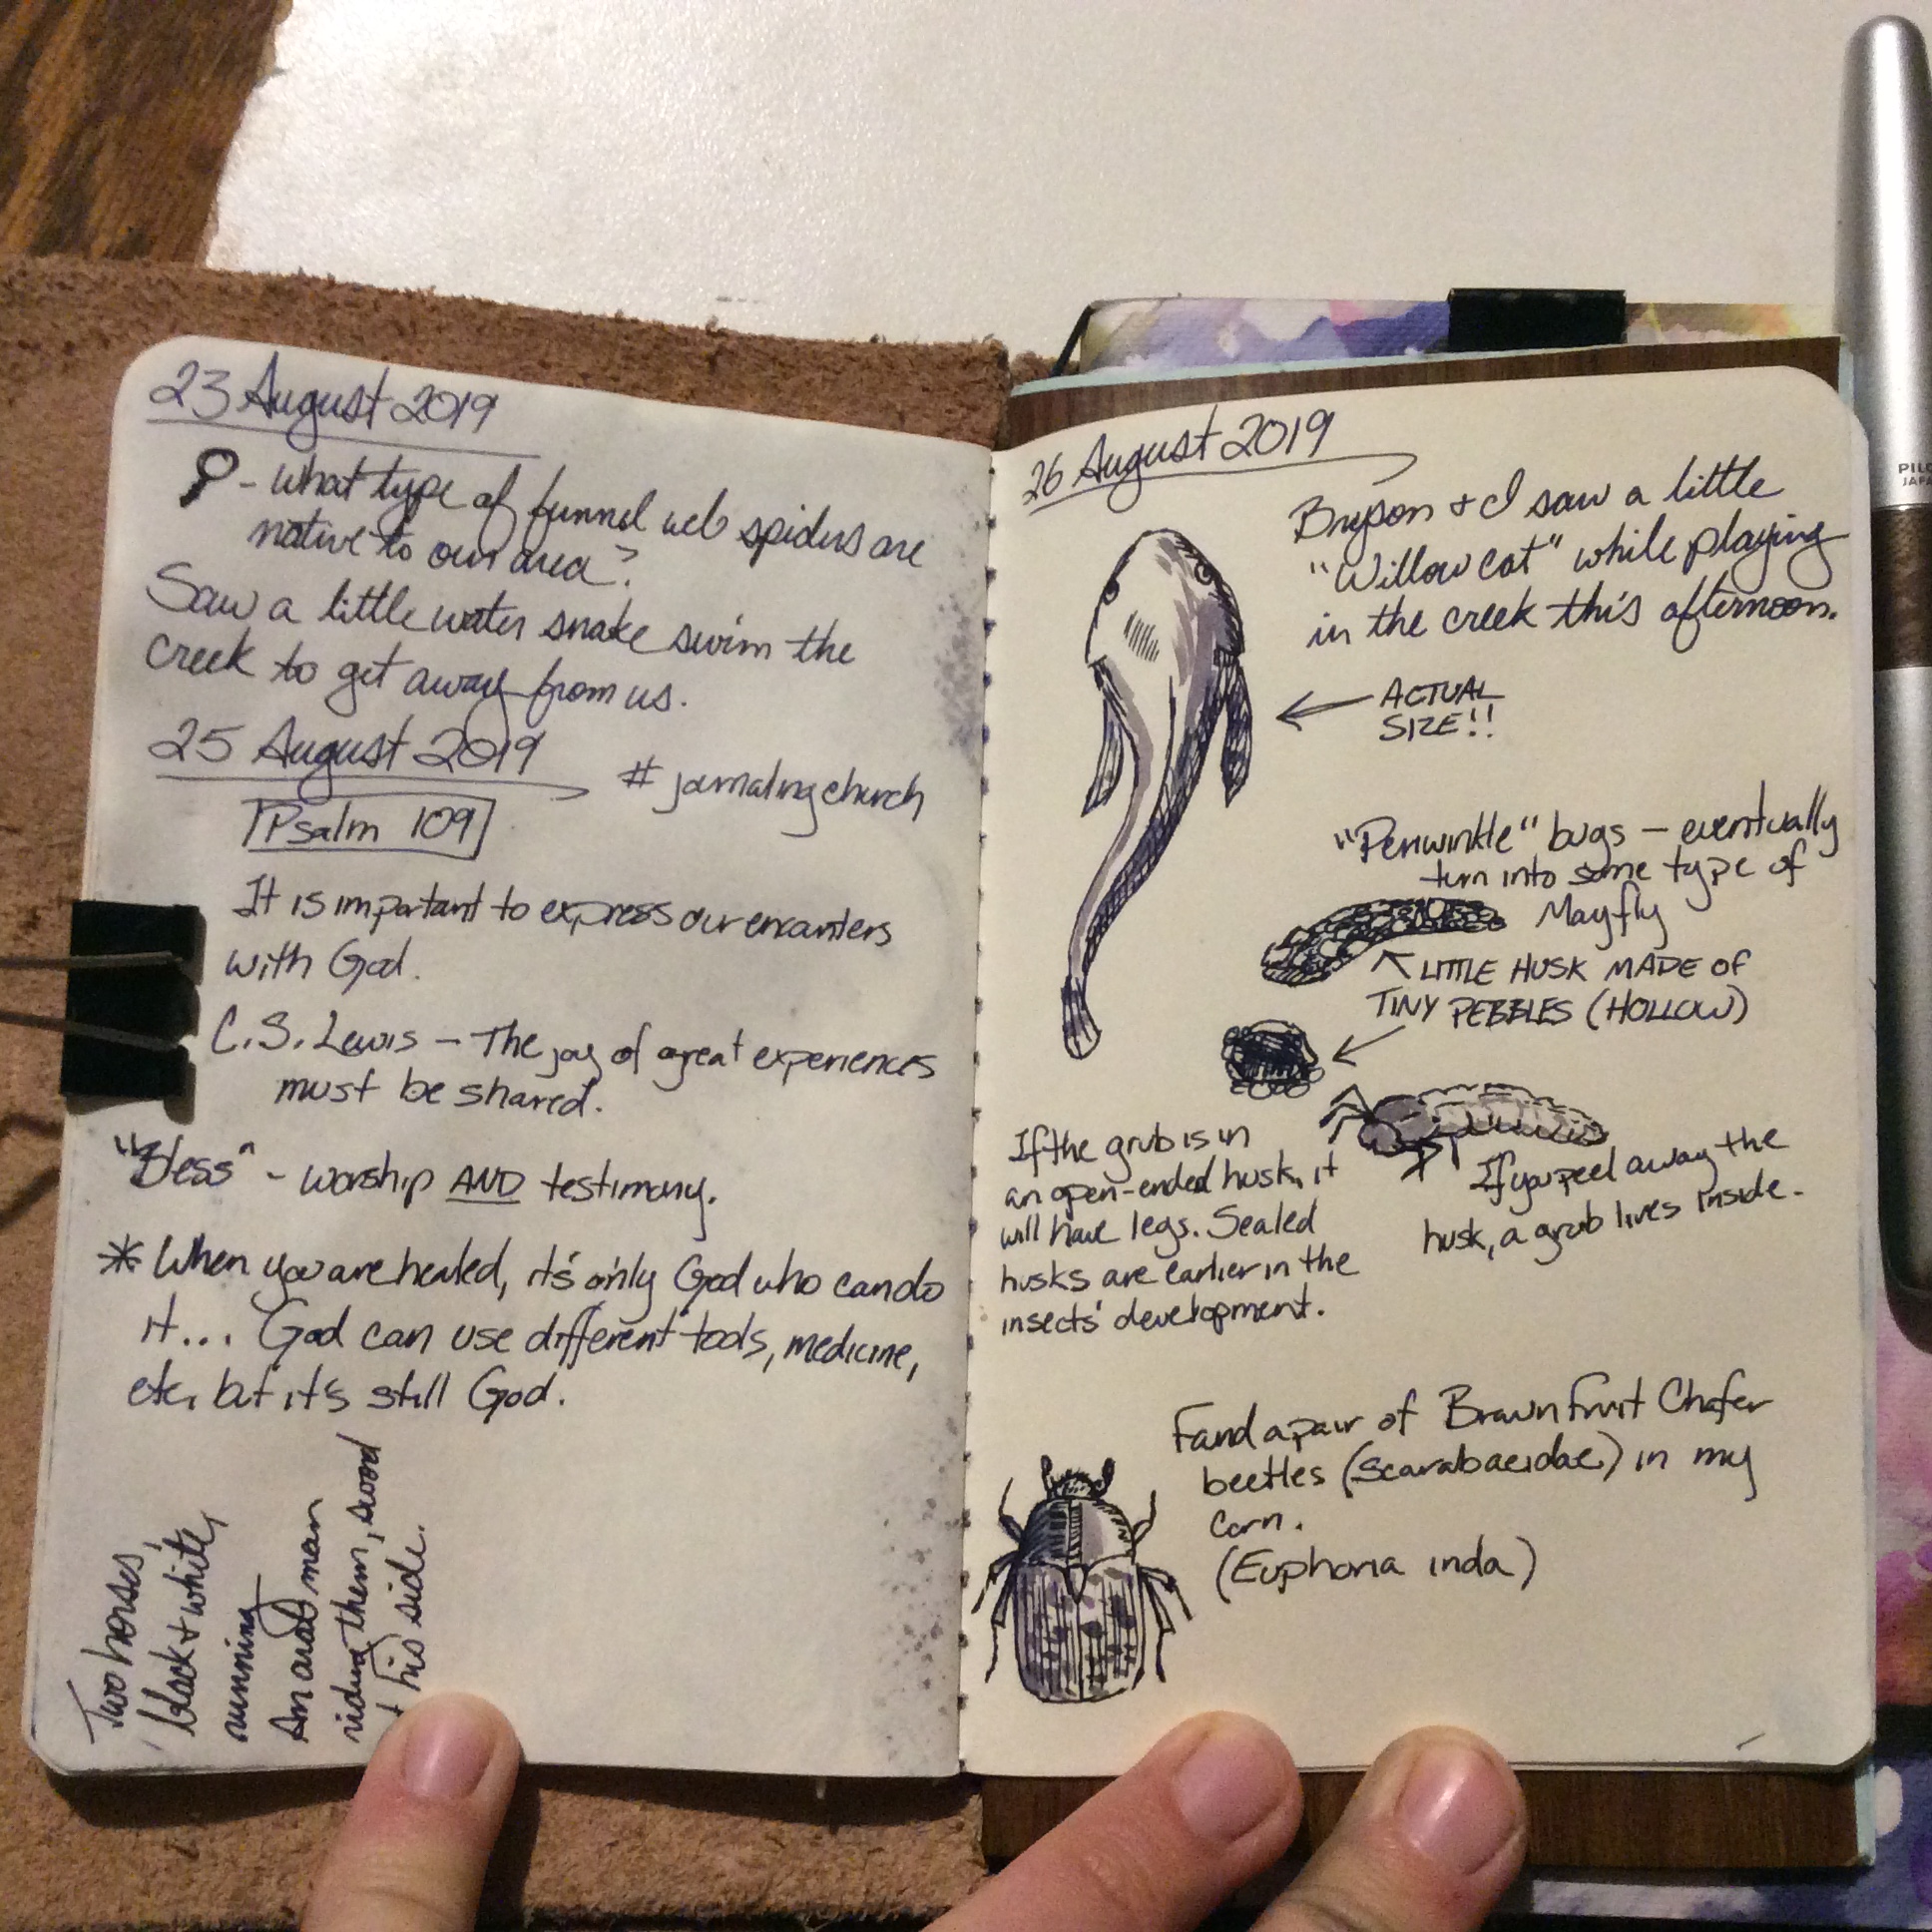 23 August 2019
- What type of funnel web spiders are
native to our area?
Saw a little water snake swim the
creek to get away from us.
25 August 2019
#journalingchurch
Psalm 109
It is important to express our encounters
with God.
C.S. Lewis - The joy of great experiences
must be shared.
"Bless" - worship AND testimony.
* When you are healed, it's only God who can do
it... God can use different tools, medicine,
etc, but it's still God.
Two horses,
black + white,
running
An arab man
riding them, sword
+ his side.
26 August 2019
Bryson + I saw a little
"Willow cat" while playing
in the creek this afternoon.
ACTUAL
SIZE!!
"Periwinkle" bugs - eventually
turn into some type of
Mayfly
LITTLE HUSK MADE OF
TINY PEBBLES (HOLLOW)
If the grub is in
an open-ended husk, it
will have legs. Sealed
husks are earlier in the
insects' development.
If you peel away the
husk, a grub lives inside.
Found a pair of Brown Fruit Chafer
beetles (Scarabaeidae) in my
corn.
(Euphoria inda)